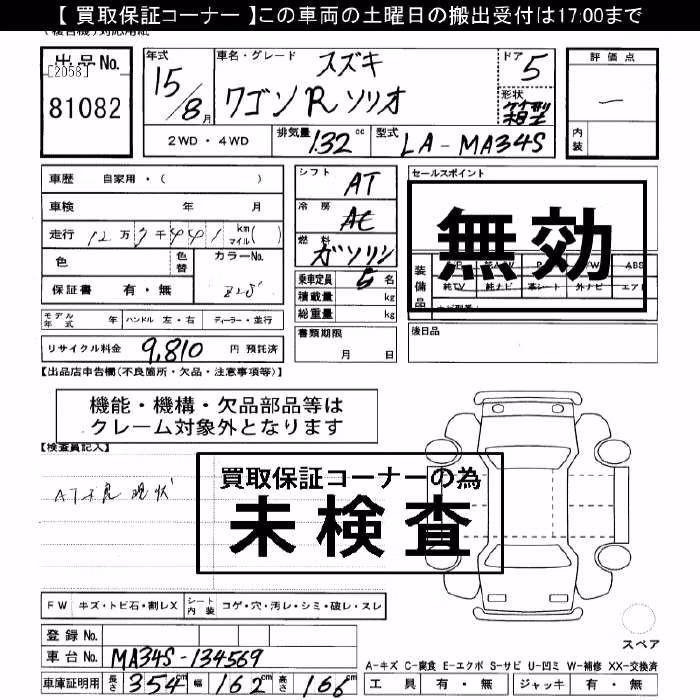 【 買取保証コーナー 】この車両の土曜日の搬出受付は17:00まで
出品No.
[2058]
81082
年式
15/8月
車名・グレード
スズキ
ワゴンR ソリオ
ドア
5
形状
評価点
内装
2WD・4WD
排気量 1.32 cc
型式 LA-MA34S
車歴 自家用・( )
車検 年 月
走行 12万 7千 441 km マイル( )
色
色替
カラーNo.
Z2S
保証書 有・無
シフト AT
冷房 AC
燃料 ガソリン
乗車定員 5名
積載量 kg
総重量 kg
書類期限
月 日
セールスポイント
無効
装備品
純TV 純ナビ 革シート 外ナビ
後日品
モデル年式 年 ハンドル 左・右 ディーラー・並行
リサイクル料金 9,810 円 預託済
【出品店申告欄(不良箇所・欠品・注意事項等)】
機能・機構・欠品部品等は
クレーム対象外となります
【検査員記入】
AT不良 現状
買取保証コーナーの為
未検査
FW キズ・トビ石・割レX シート内装 コゲ・穴・汚レ・シミ・破レ・スレ
登録No.
車台No. MA34S-134569
車庫証明用 長さ 354cm 幅 162cm 高さ 166cm
スペア
A-キズ C-腐食 E-エクボ S-サビ U-凹ミ W-補修 XX-交換済
工具 有・無 ジャッキ 有・無